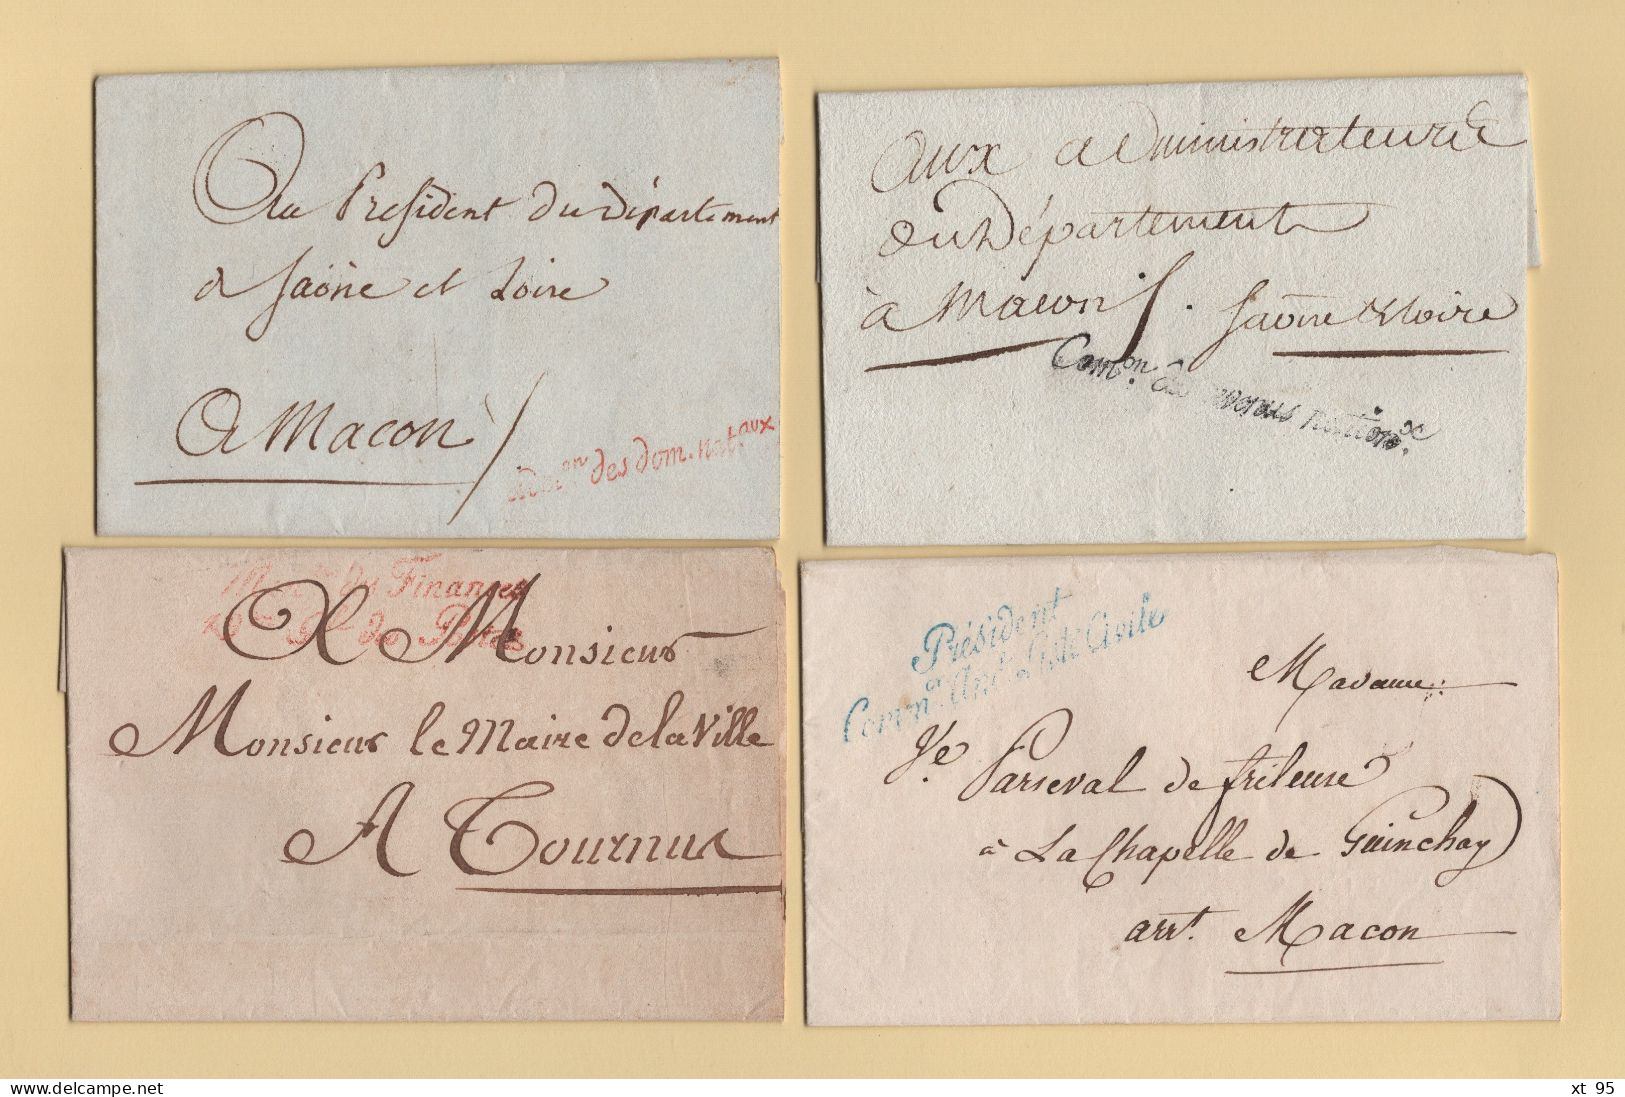 Au President du Département
de Saône et Loire
A Macon
des dom. nat.aux
aux administrateurs
du Département
à Macon. Saône & Loire
Com.on des revenus nation.x
du Finances
Gl des Postes
A Monsieur
Monsieur le Maire de la Ville
A Tournus
Président
Comm.on Liste Civile
Madame
Ve Parseval de frileuse
à La Chapelle de Guinchay
arrt. Macon
delcampe.net
xt 95